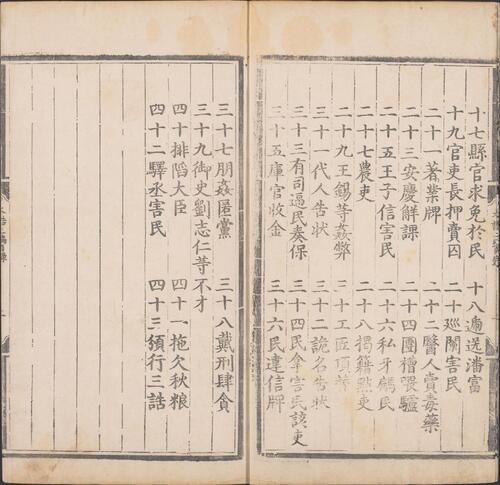 十七縣官求免於民　十八遞送潘富
十九官吏長押賣囚　二十巡闌害民
二十一著業牌　二十二醫人賣毒藥
二十三安慶解課　二十四團槽喂驢
二十五王子信害民　二十六私牙騙民
二十七農吏　二十八籍點吏
二十九王錫等姦弊　三十工匠頂替
三十一代人告狀　三十二詭名告狀
三十三有司逼民奏保　三十四民拿害民該吏
三十五庫官收金　三十六民違信牌
三十七朋姦匿黨　三十八戴刑肆貪
三十九御史劉志仁等不才
四十排陷大臣　四十一拖欠秋粮
四十二驛丞害民　四十三頒行三誥